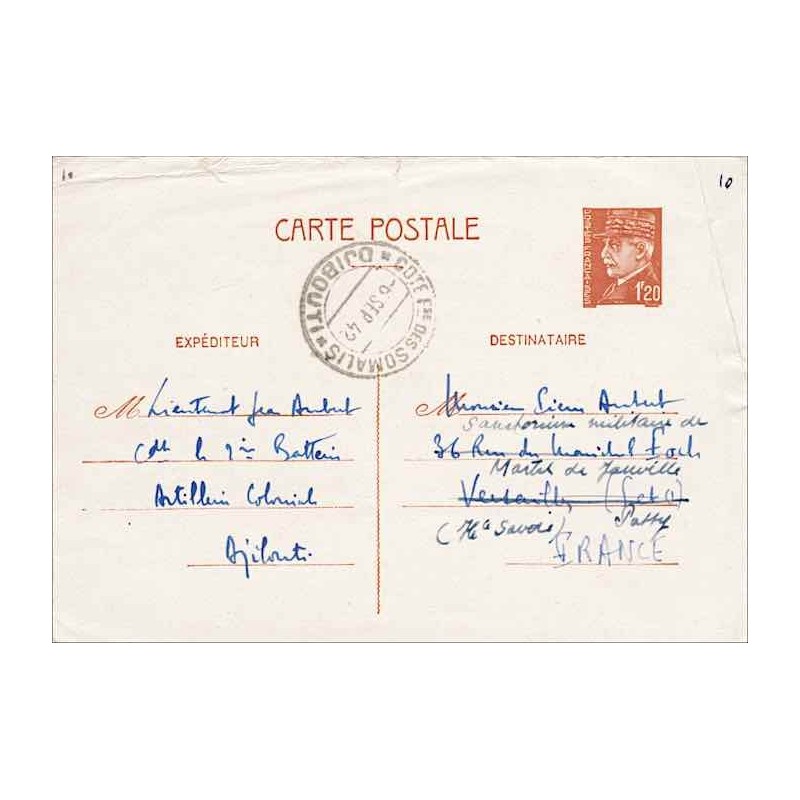 10
10
CARTE POSTALE
POSTES FRANÇAISES
1F20
COTE FSE DES SOMALIS
* DJIBOUTI *
6 SEP 42
EXPÉDITEUR
DESTINATAIRE
M Lieutenant Jean Aubert
Cdt la 9ème Batterie
Artillerie Coloniale
Djibouti
Monsieur Pierre Aubert
Sanatorium militaire de
36 Rue du Maréchal Foch
Martel de Janville
Versailles (Set O)
(Hte Savoie) Passy
FRANCE